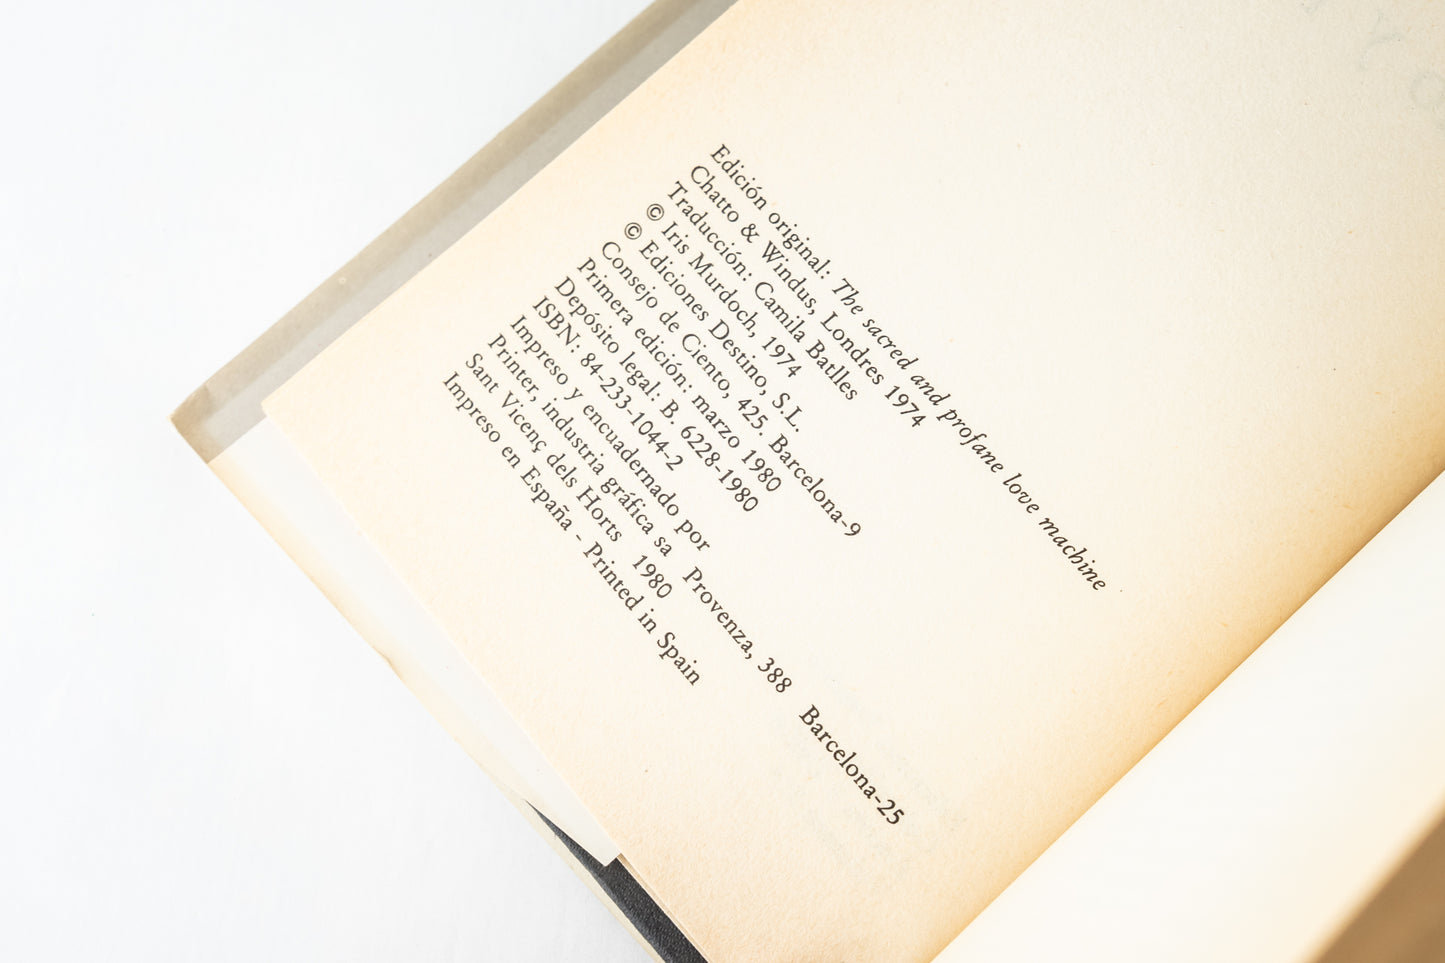 Edición original: The sacred and profane love machine
Chatto & Windus, Londres 1974
Traducción: Camila Batlles
© Iris Murdoch, 1974
© Ediciones Destino, S.L.
Consejo de Ciento, 425. Barcelona-9
Primera edición: marzo 1980
Depósito legal: B. 6228-1980
ISBN: 84-233-1044-2
Impreso y encuadernado por
Printer, industria gráfica sa Provenza, 388 Barcelona-25
Sant Vicenç dels Horts 1980
Impreso en España - Printed in Spain